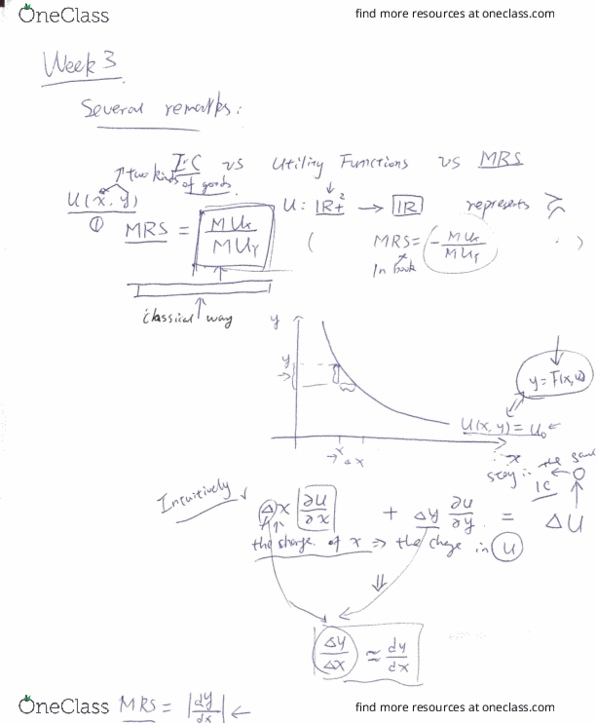 OneClass
find more resources at oneclass.com
Week 3
Several remarks:
I.C vs Utility Functions vs MRS
↑ two kinds of goods.
U(x, y)
U: IR+² → IR represents ≿
① MRS = MUx / MUy
( MRS = - MUx / MUy )
In book
classical way
y
y
y = F(x, u)
U(x, y) = U₀
x
x Δx
stay in the same IC
Intuitively
Δx ∂U/∂x + Δy ∂U/∂y = ΔU
0
the change of x ⇒ the change in U
Δy/Δx ≈ dy/dx
OneClass
MRS = |dy/dx| ←
find more resources at oneclass.com